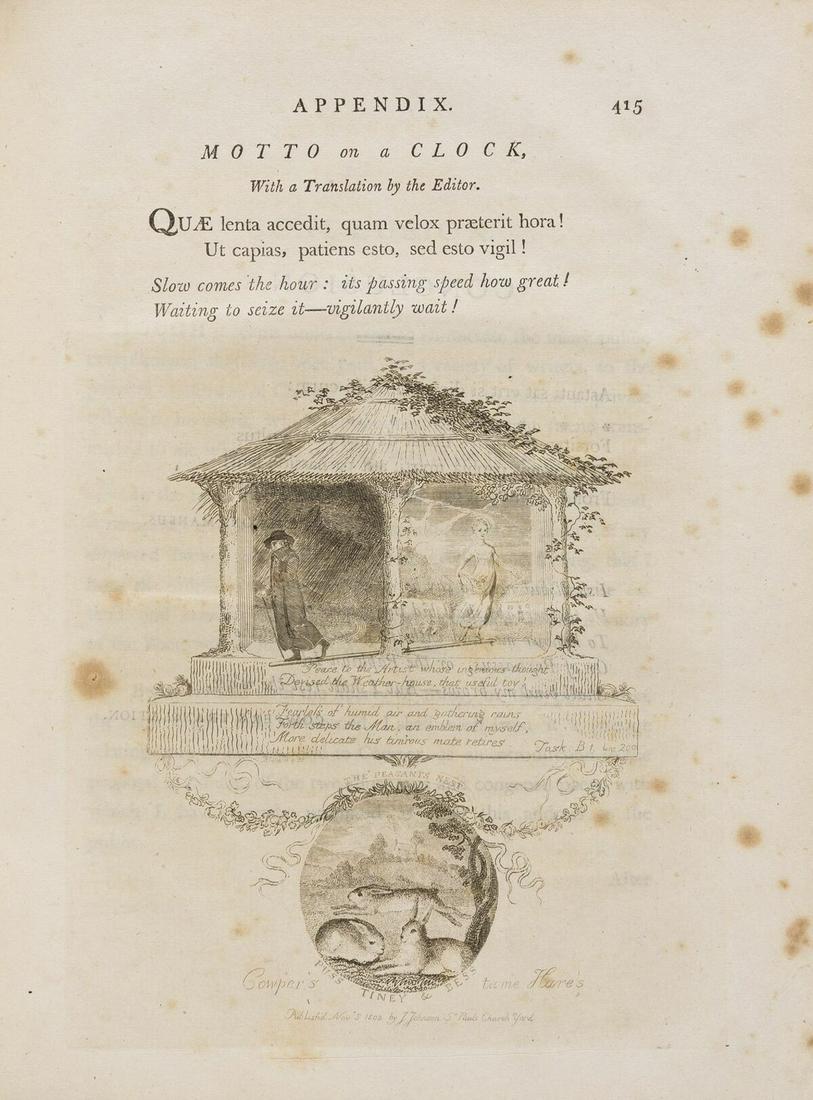 APPENDIX. 415
MOTTO on a CLOCK,
With a Translation by the Editor.
QUÆ lenta accedit, quam velox præterit hora!
Ut capias, patiens esto, sed esto vigil!
Slow comes the hour: its passing speed how great!
Waiting to seize it—vigilantly wait!
Peace to the Artist whose ingenious thought
Devised the Weather-house, that useful toy!
Fearless of humid air and gathering rains
Forth steps the Man, an emblem of myself,
More delicate his timorous mate retires
Task B 1.
THE PEASANTS NEST
PUSS TINEY & BESS
Cowper's tame Hares
Publish'd Nov. 5 1802 by J. Johnson St. Pauls Church Yard